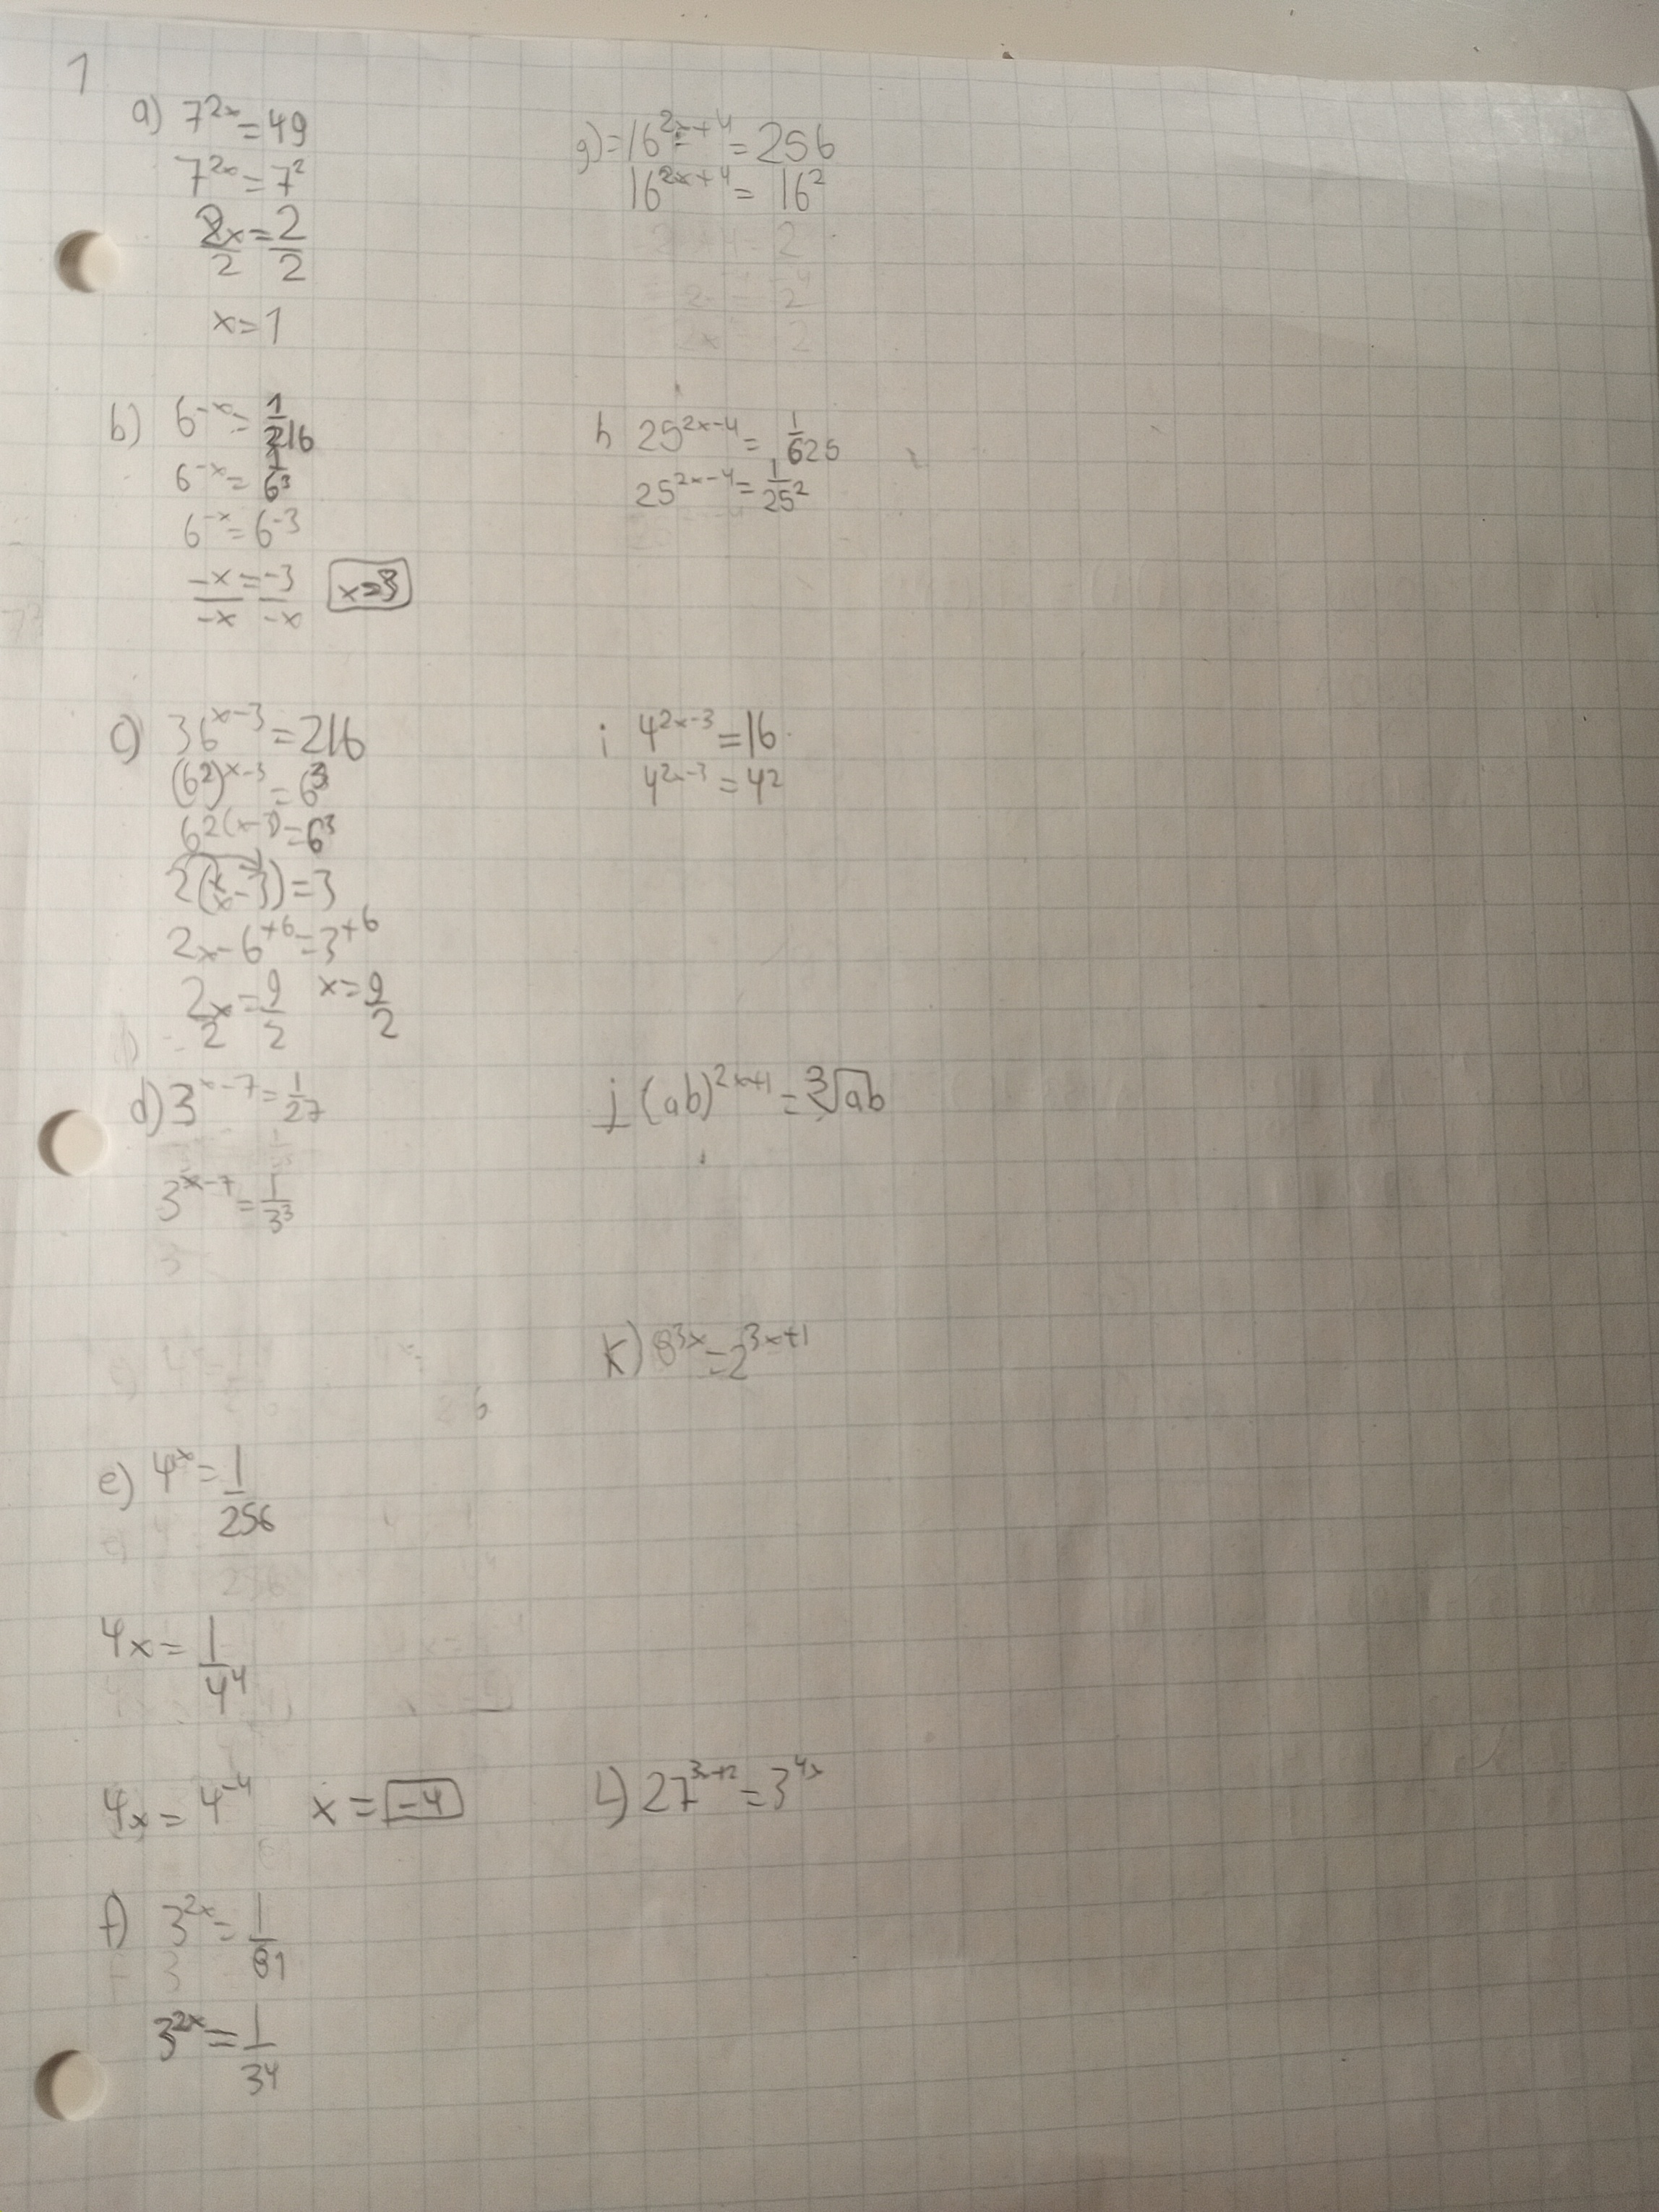 1
a) 7^2x = 49
7^2x = 7^2
2x/2 = 2/2
x = 1
b) 6^-x = 1/216
6^-x = 1/6^3
6^-x = 6^-3
-x/-x = -3/-x x=3
c) 36^x-3 = 216
(6^2)^x-3 = 6^3
6^2(x-3) = 6^3
2(x-3) = 3
2x-6^+6 = 3^+6
2x/2 = 9/2 x = 9/2
d) 3^x-7 = 1/27
3^x-7 = 1/3^3
e) 4^x = 1/256
4x = 1/4^4
4x = 4^-4 x = -4
f) 3^2x = 1/81
3^2x = 1/3^4
g) = 16^2x+4 = 256
16^2x+4 = 16^2
h 25^2x-4 = 1/625
25^2x-4 = 1/25^2
i 4^2x-3 = 16
4^2x-3 = 4^2
j (ab)^2x+1 = ∛ab
k) 8^3x = 2^3x+1
L) 27^3x+2 = 3^4x